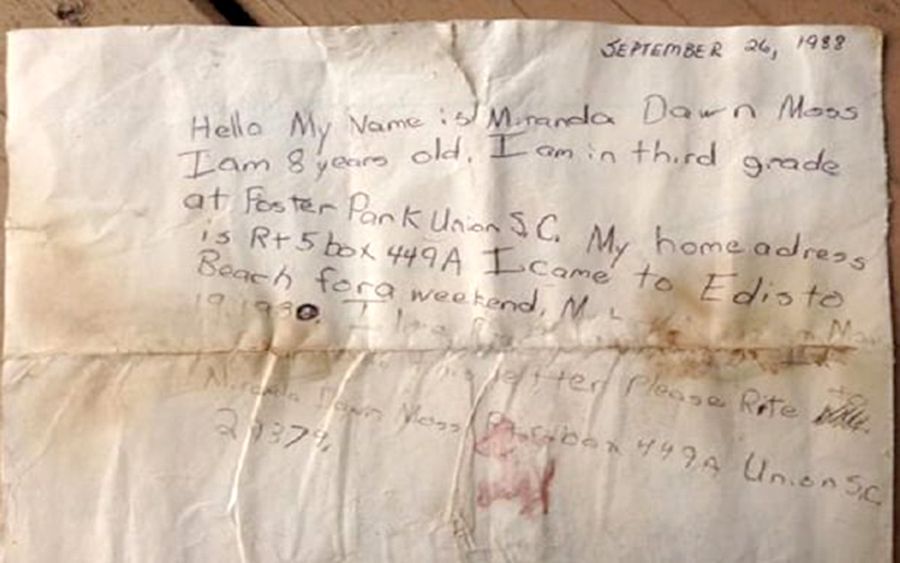 SEPTEMBER 26, 1988
Hello My Name is Miranda Dawn Moss
I am 8 years old. I am in third grade
at Foster Park Union S.C. My home adress
is Rt 5 box 449A I came to Edisto
Beach for a weekend, M
19 1980. I
letter Please Rite
Miranda Dawn Moss box 449A Union S.C
29379,